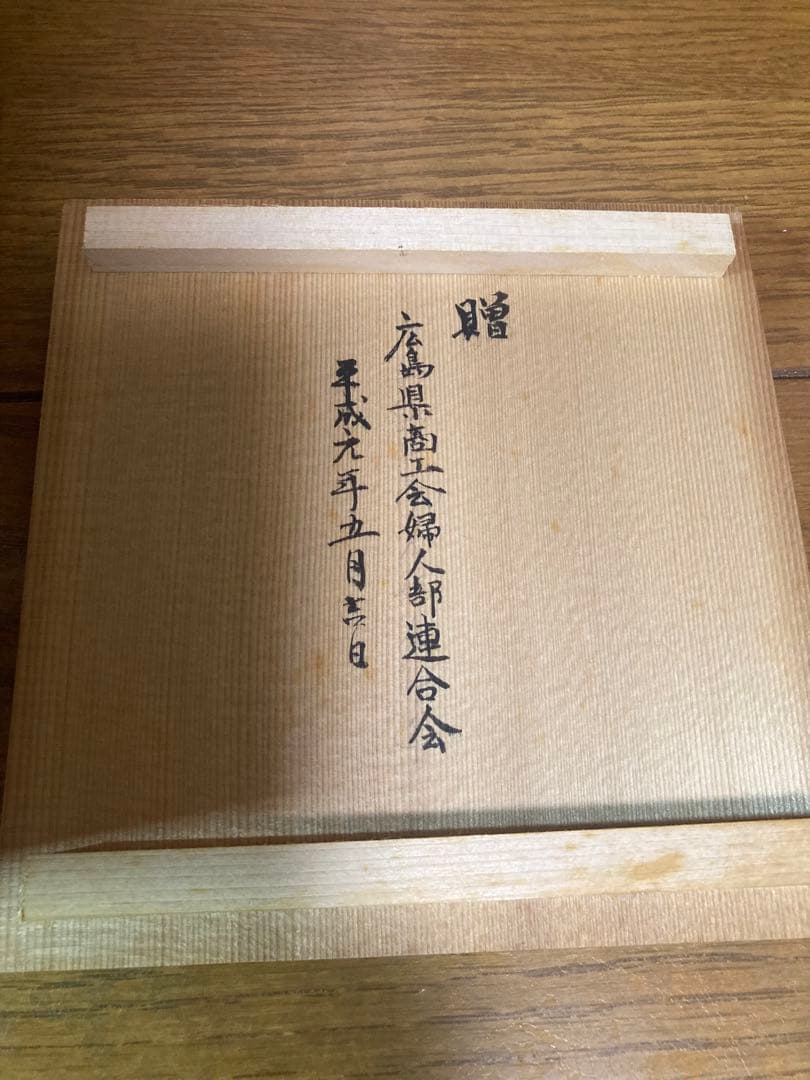 贈
広島県商工会婦人部連合会
平成元年五月 日